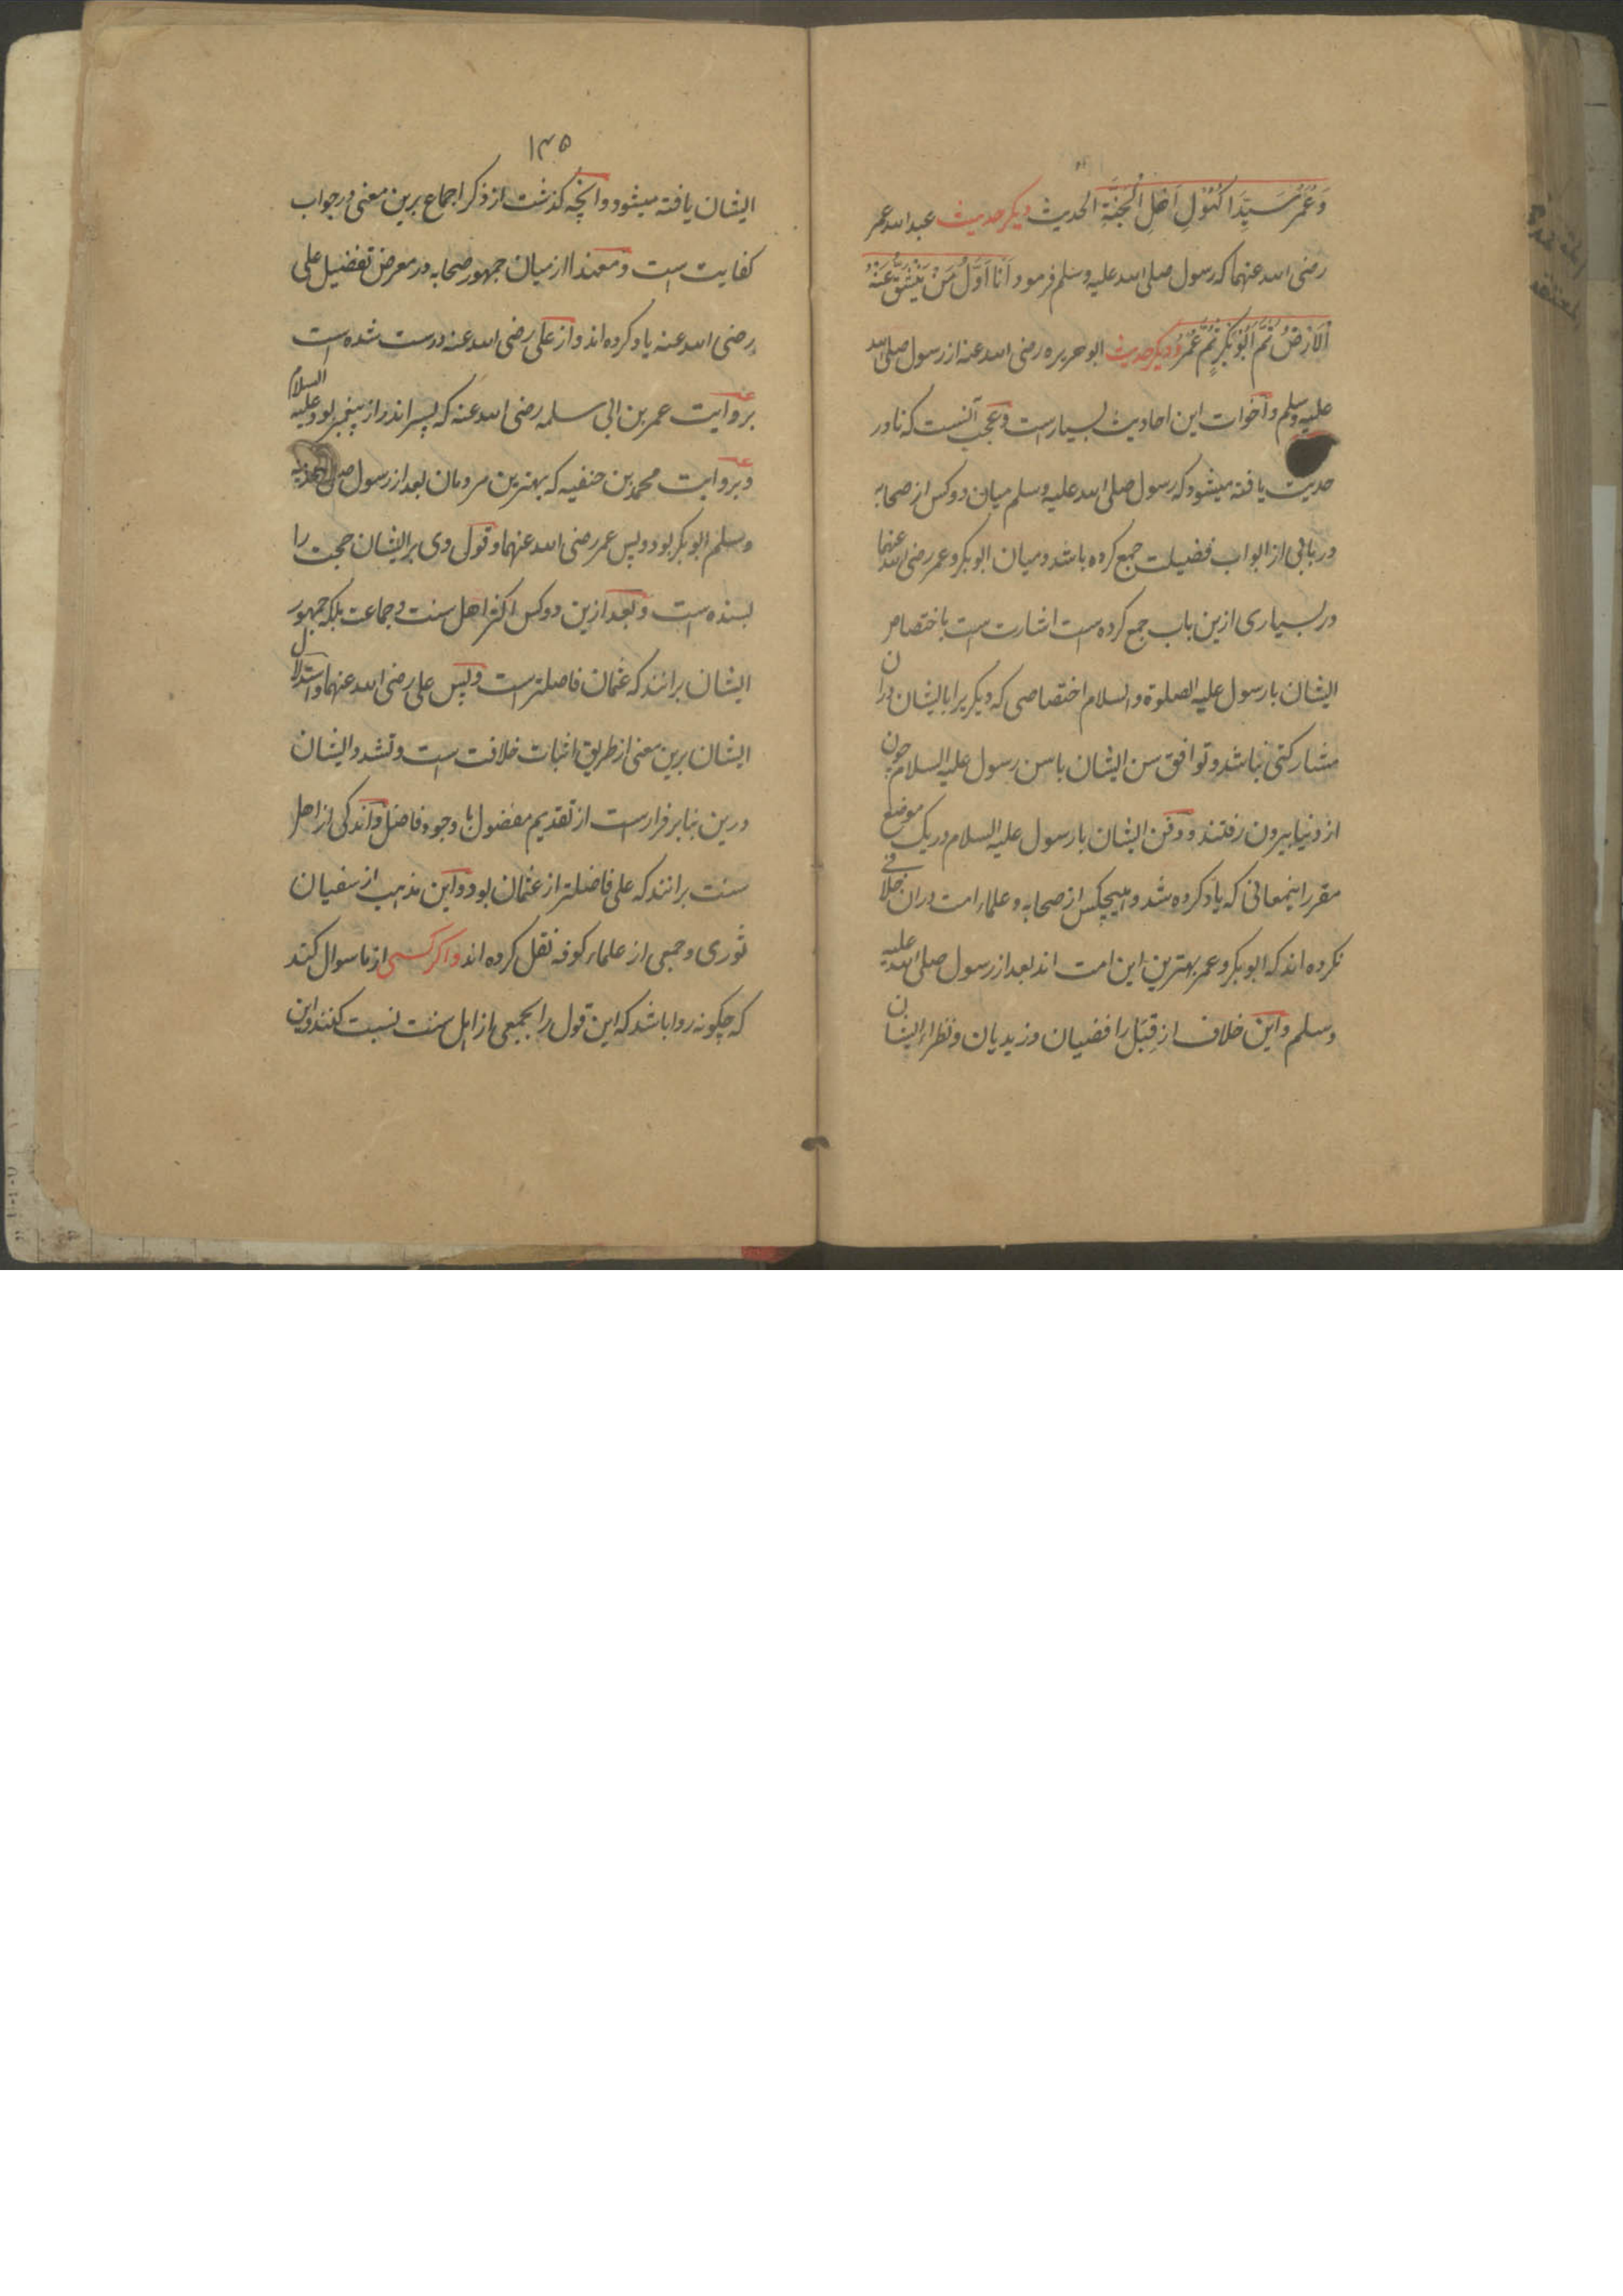 وَعُمَرُ سَيِّدَا كُهُوْلِ اَهْلِ الْجَنَّةِ الحديث ديكر حديث عبد الله عمر
رضى الله عنهما كه رسول صلى الله عليه وسلم فرمود اَنَا اَوَّلُ مَنْ يَنْشَقُّ عَنْهُ
الْاَرْضُ ثُمَّ اَبُوْبَكْرٍ ثُمَّ عُمَرُ وديكر حديث ابو هريره رضى الله عنه از رسول صلى الله
عليه وسلم واخوات اين احاديث بسيارست وعجب آنست كه نادر
حديث يافته ميشود كه رسول صلى الله عليه وسلم ميان دو كس از صحابه
در بابى از ابواب فضيلت جمع كرده باشد و ميان ابو بكر و عمر رضى الله عنهما
در بسيارى ازين باب جمع كرده است اشارت است باختصاص
ايشان با رسول عليه الصلوة والسلام اختصاصى كه ديكريرا با ايشان دران
مشاركتى نباشد و توافق سن ايشان با سن رسول عليه السلام چون
از دنيا بيرون رفتند و دفن ايشان با رسول عليه السلام در يك موضع
مقرر اينمعانى كه ياد كرده شد و هيچكس از صحابه و علماء امت دران خلافى
نكرده اند كه ابو بكر و عمر بهترين اين امت اند بعد از رسول صلى الله عليه
وسلم و اين خلاف از قِبَل رافضيان و زيديان و نظراء ايشان
۱۳۵
ايشان يافته ميشود و انچه كذشت از ذكر اجماع برين معنى در جواب
كفايت است و معهذا از ميان جمهور صحابه در معرض تفضيل على
رضى الله عنه ياد كرده اند و از على رضى الله عنه درست شده است
بروايت عمر بن ابى سلمه رضى الله عنه كه پسر اندر از پيغمبر بود عليه السلام
و بروايت محمد بن حنفيه كه بهترين مردمان بعد از رسول صلى الله عليه
وسلم ابو بكر بود و پس عمر رضى الله عنهما و قول وى بر ايشان حجت را
بسنده است و بعد ازين دو كس اكثر اهل سنت و جماعت بلكه جمهور
ايشان برانند كه عثمان فاضلتر است و پس على رضى الله عنهما و استدلال
ايشان برين معنى از طريق اثبات خلافت است و تشدد ايشان
درين بنا بر فرارست از تقديم مفضول با وجود فاضل و اندكى از اهل
سنت برانند كه على فاضلتر از عثمان بود و اين مذهب از سفيان
ثورى و جمعى از علماء كوفه نقل كرده اند و اكر كسى از ما سوال كند
كه چكونه روا باشد كه اين قول را بجمعى از اهل سنت نسبت كنند و اين